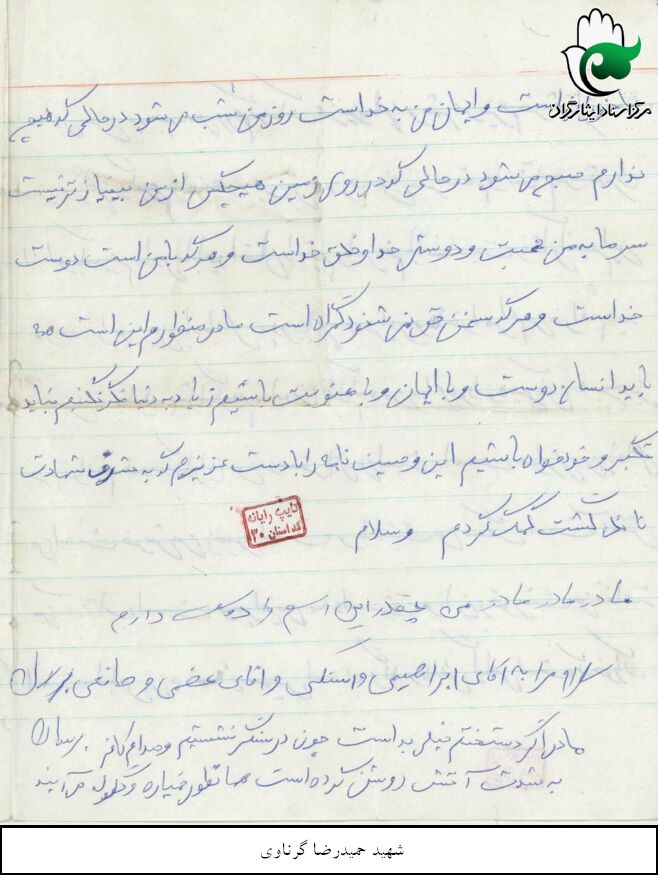 مرکز اسناد ایثارگران
است و ایمان من به خداست روز من شب می شود در حالی که هیچ
ندارم صبح می شود در حالی که در روی زمین هیچکس از من بینیازتر نیست
سرمایه من محبت و دوستی خدا و خلق خداست و هر که با من است دوست
خداست و هر که سخن حق نمی شنود گمراه است مادر منظورم این است که
باید انسان دوست و با ایمان و با معنویت باشیم زیاد به دنیا فکر نکنیم نباید
متکبر و خودخواه باشیم این وصیت نامه را با دست عزیزم که به شرف شهادت
نائل گشت کمک کردم وسلام
تایپ رایانه
کد استان ۳۰
مادر مادر مادر من چقدر این اسم را دوست دارم
سلام مرا به اقای ابراهیمی و اقای و برسان
مادر اگر دستخطم خیلی بد است چون در سنگر نشستیم و صدام کافر
به شدت آتش روشن کرده است همانطور خمپاره و گلوله می آیند
شهید حمیدرضا گرناوی